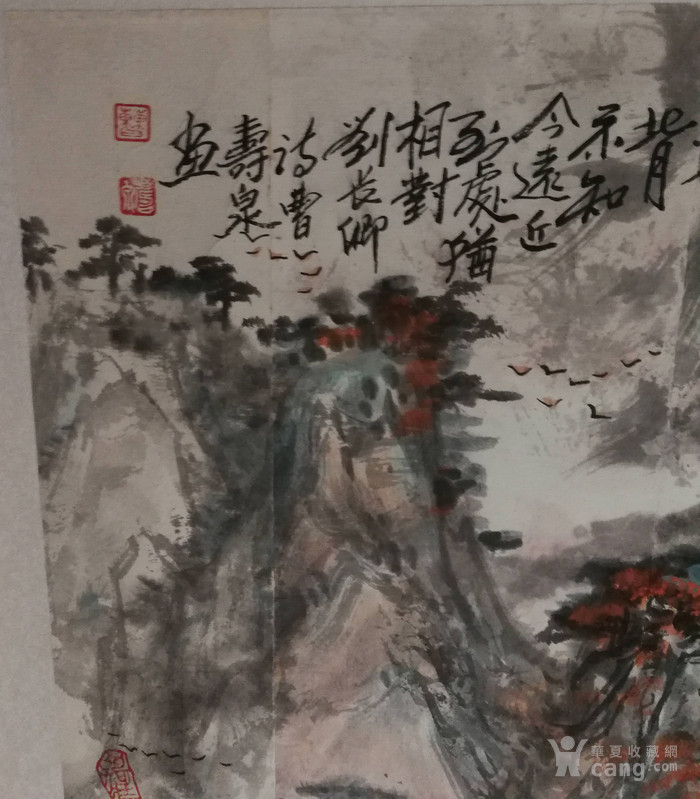 背
不知
今遠近
到處猶
相對
劉长卿
诗曹
壽泉
画
華夏收藏網
cang.com